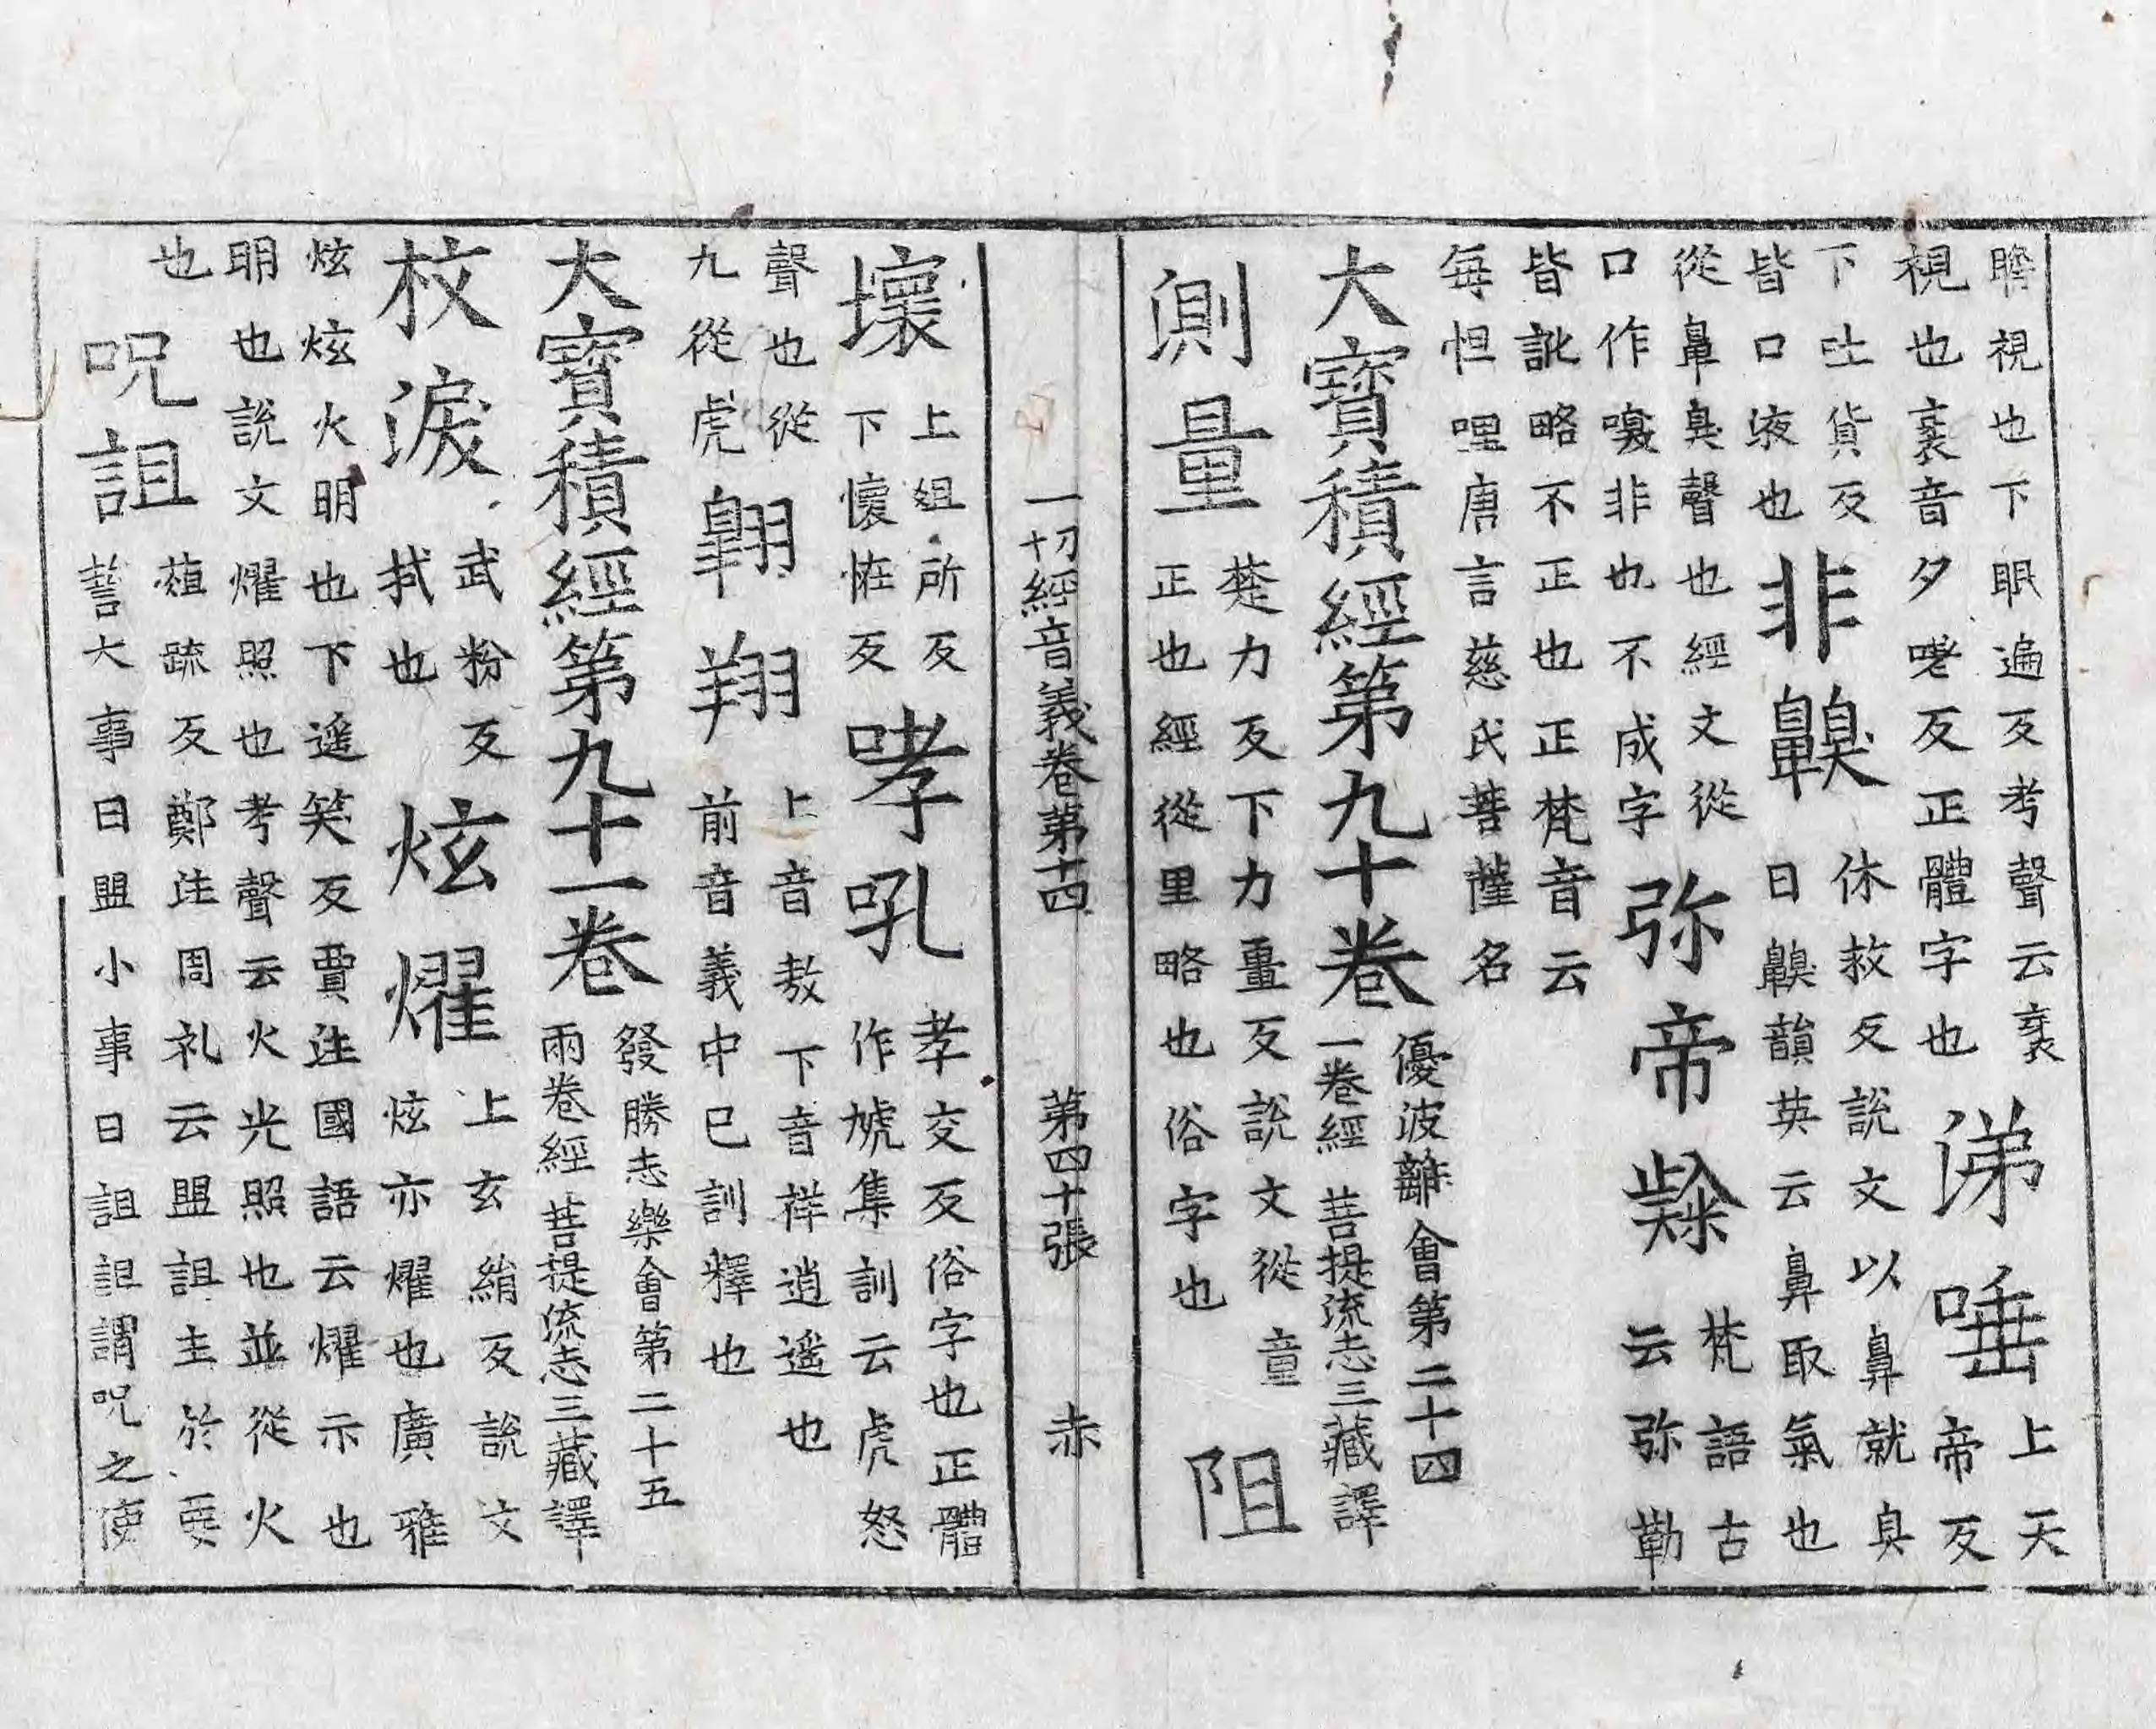 瞻視也下眠遍反考聲云衺
視也衺音夕嗟反正體字也
涕唾
上天
帝反
下吐貨反
皆口液也
非齅
休救反說文以鼻就臭
曰齅韻英云鼻取氣也
從鼻臭聲也經文從
口作嗅非也不成字
弥帝㰆
梵語古
云弥勒
皆訛略不正也正梵音云
每怛哩唐言慈氏菩薩名
大寶積經第九十卷
優波離會第二十四
一卷經 菩提流志三藏譯
測量
楚力反下力畺反說文從童
正也經從里略也俗字也
阻
一切經音義卷第十四 第四十張 赤
壞
上姐所反
下懷恠反
哮吼
孝交反俗字也正體
作虓集訓云虎怒
聲也從
九從虎
翱翔
上音敖下音祥逍遥也
前音義中已訓釋也
大寶積經第九十一卷
發勝志樂會第二十五
兩卷經 菩提流志三藏譯
抆淚
武粉反
拭也
炫燿
上玄絹反說文
炫亦燿也廣雅
炫炫火明也下遥笑反賈注國語云燿示也
明也說文燿照也考聲云火光照也並從火
也
呪詛
葅疏反鄭注周礼云盟詛主於要
誓大事曰盟小事曰詛詛謂呪之使